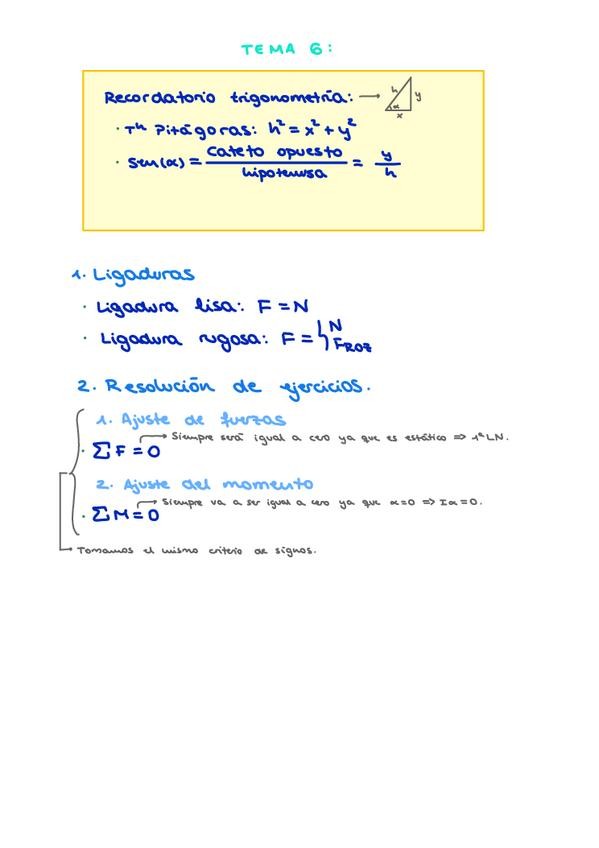 TEMA 6:
Recordatorio trigonometría: → h y α x
· Th Pitágoras: h² = x² + y²
· Sen(α) = Cateto opuesto / hipotenusa = y / h
1. Ligaduras
· Ligadura lisa: F = N
· Ligadura rugosa: F = { N FROZ
2. Resolución de ejercicios.
1. Ajuste de fuerzas
→ Siempre será igual a cero ya que es estático => 1ª LN.
· ΣF = 0
2. Ajuste del momento
→ Siempre va a ser igual a cero ya que α=0 => Iα=0.
· ΣM = 0
→ Tomamos el mismo criterio de signos.